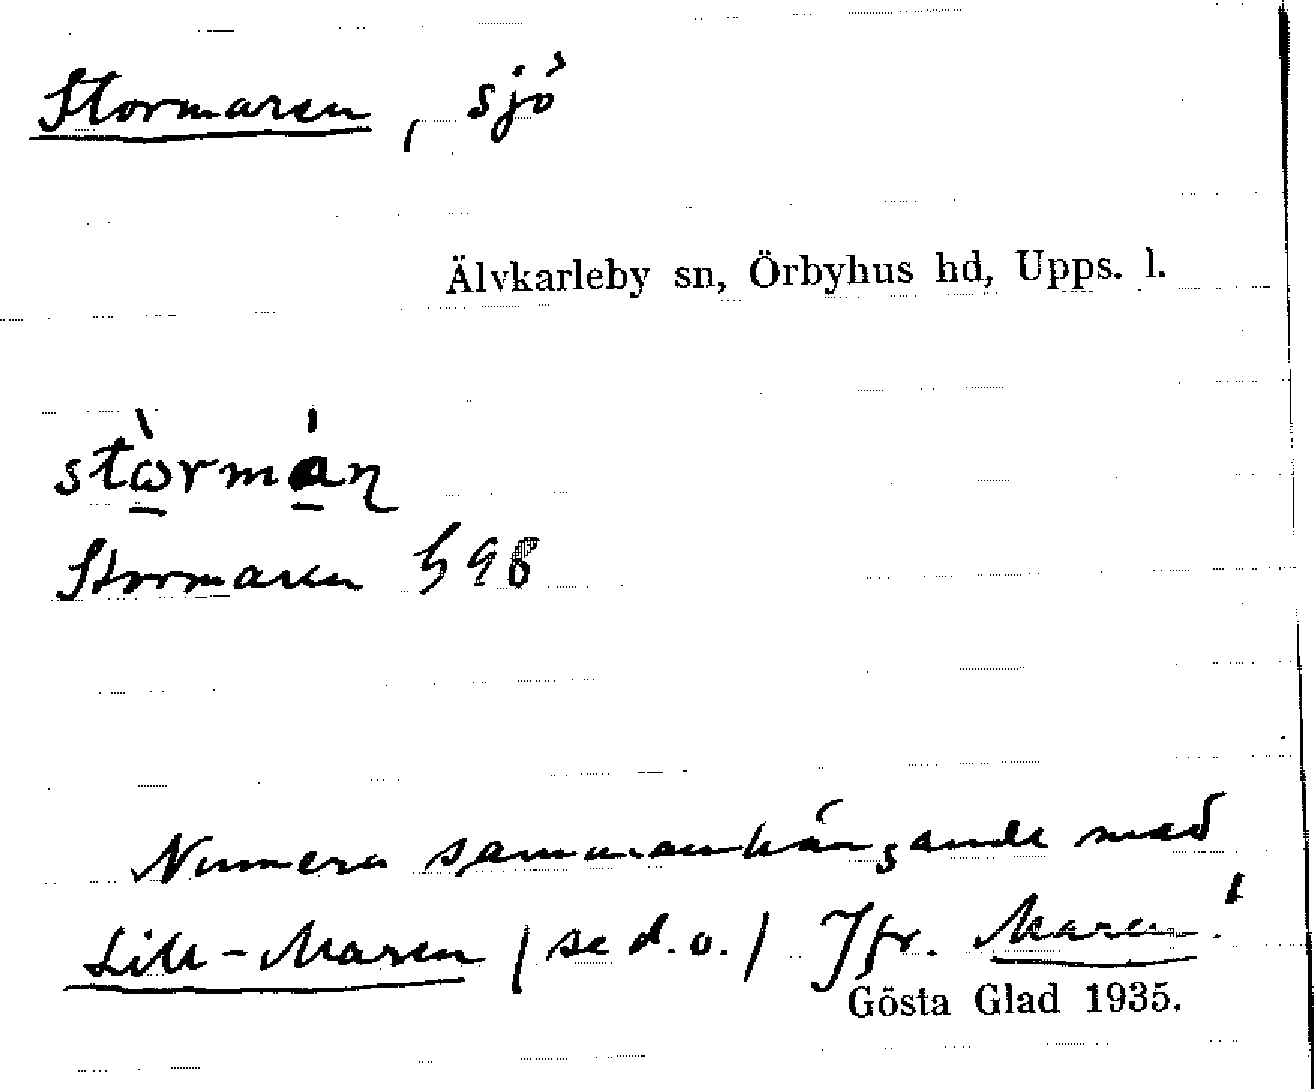 Stormaren, sjö
Älvkarleby sn, Örbyhus hd, Upps. l.
stòrmán
Stormaren h 98
Numera sammanhängande med
Lill-Maren (se d.o.) Jfr. Maren!
Gösta Glad 1935.